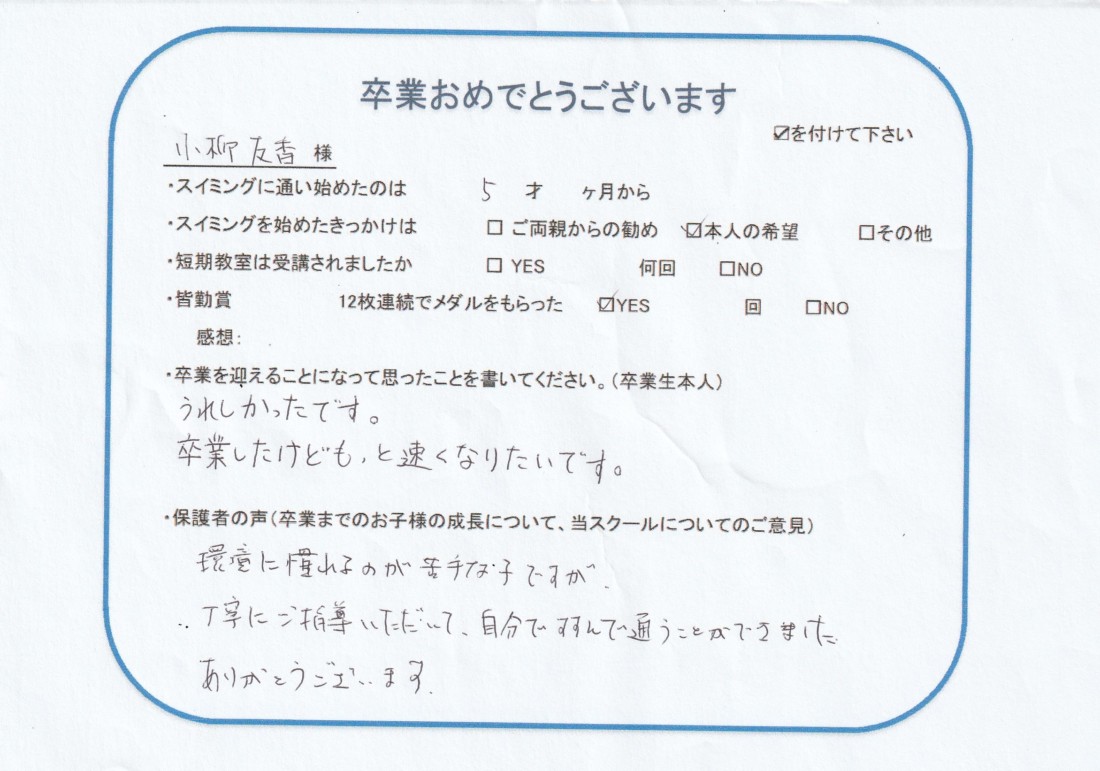 卒業おめでとうございます
☑を付けて下さい
小柳 友香 様
・スイミングに通い始めたのは 5 才 ヶ月から
・スイミングを始めたきっかけは ☐ ご両親からの勧め ☑本人の希望 ☐その他
・短期教室は受講されましたか ☐ YES 何回 ☐NO
・皆勤賞 12枚連続でメダルをもらった ☑YES 回 ☐NO
感想:
・卒業を迎えることになって思ったことを書いてください。(卒業生本人)
うれしかったです。
卒業したけども,と速くなりたいです。
・保護者の声(卒業までのお子様の成長について、当スクールについてのご意見)
環境に慣れるのが苦手な子ですが、
丁寧にご指導いただいて、自分ですすんで通うことができました。
ありがとうございます。